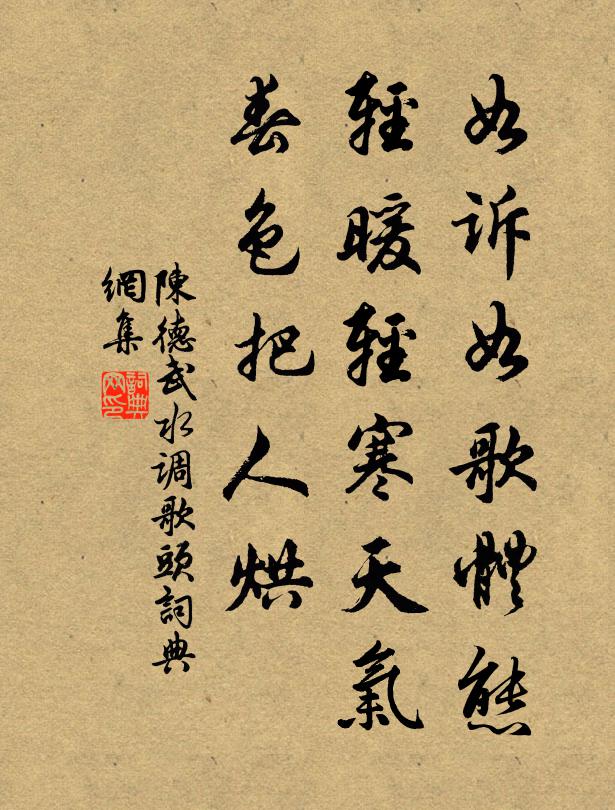 如訴如歌體態
輕暖輕寒天氣
春色把人烘
陳德武水调歌頭詞典
網集
詞典網印